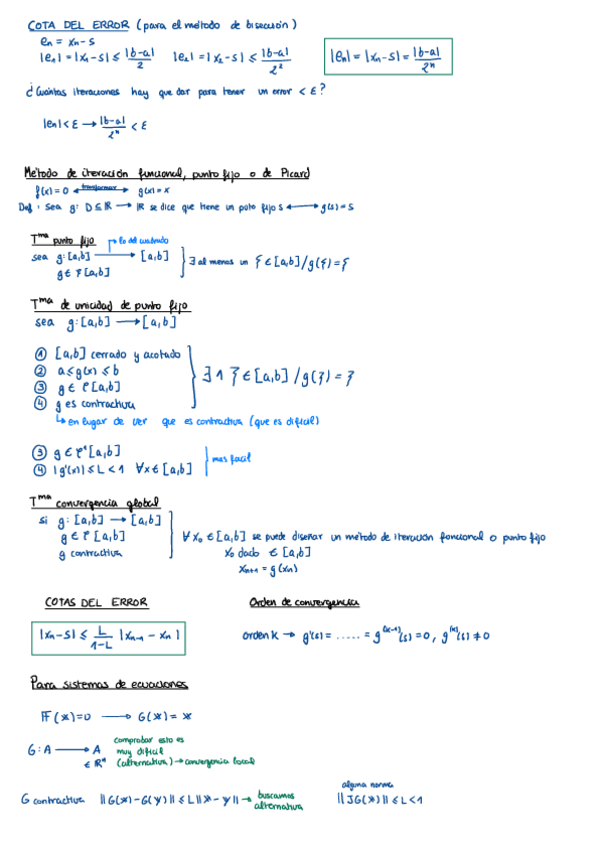 COTA DEL ERROR (para el método de bisección)
en = xn - s
|e1| = |x1 - s| ≤ |b-a|/2   |e2| = |x2 - s| ≤ |b-a|/2²   |en| = |xn - s| = |b-a|/2ⁿ
¿Cuántas iteraciones hay que dar para tener un error < ε?
|en| < ε → |b-a|/2ⁿ < ε
Método de iteración funcional, punto fijo o de Picard
f(x) = 0 ←transformar→ g(x) = x
Def: Sea g: D ⊆ ℝ → ℝ se dice que tiene un pto fijo s ↔ g(s) = s
Tma punto fijo → lo del cuadrado
sea g: [a,b] → [a,b]
g ∈ ℓ [a,b] } ∃ al menos un ξ ∈ [a,b] / g(ξ) = ξ
Tma de unicidad de punto fijo
sea g: [a,b] → [a,b]
① [a,b] cerrado y acotado
② a ≤ g(x) ≤ b
③ g ∈ ℓ [a,b] } ∃ 1 ξ ∈ [a,b] / g(ξ) = ξ
④ g es contractiva
↳ en lugar de ver que es contractiva (que es difícil)
③ g ∈ ℓ¹ [a,b]
④ |g'(x)| ≤ L < 1 ∀x ∈ [a,b] } mas facil
Tma convergencia global
si g: [a,b] → [a,b]
g ∈ ℓ [a,b] } ∀ x0 ∈ [a,b] se puede diseñar un método de iteración funcional o punto fijo
g contractiva   x0 dado ∈ [a,b]
xn+1 = g(xn)
COTAS DEL ERROR   Orden de convergencia
|xn - s| ≤ L/(1-L) |xn-1 - xn|   orden k → g'(s) = ..... = g^(k-1)(s) = 0, g^(k)(s) ≠ 0
Para sistemas de ecuaciones
𝔽(𝕩) = 0 → G(𝕩) = 𝕩
G: A → A   comprobar esto es
∈ ℝⁿ   muy dificil
(alternativa) → convergencia local
G contractiva   ||G(𝕩) - G(𝕪)|| ≤ L||𝕩 - 𝕪|| → buscamos alternativa   alguna norma
||JG(𝕩)|| ≤ L < 1